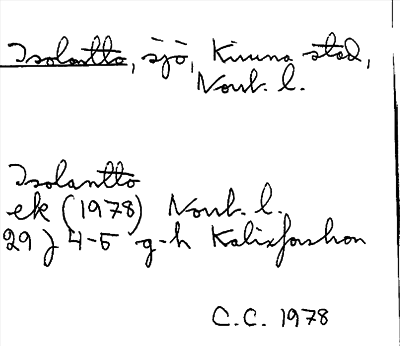 Isolantto, sjö, Kiruna stad,
Norrb. l.
Isolantto
ek (1978) Norrb. l.
29 J 4-5 g-h Kalixforshon
C.C. 1978